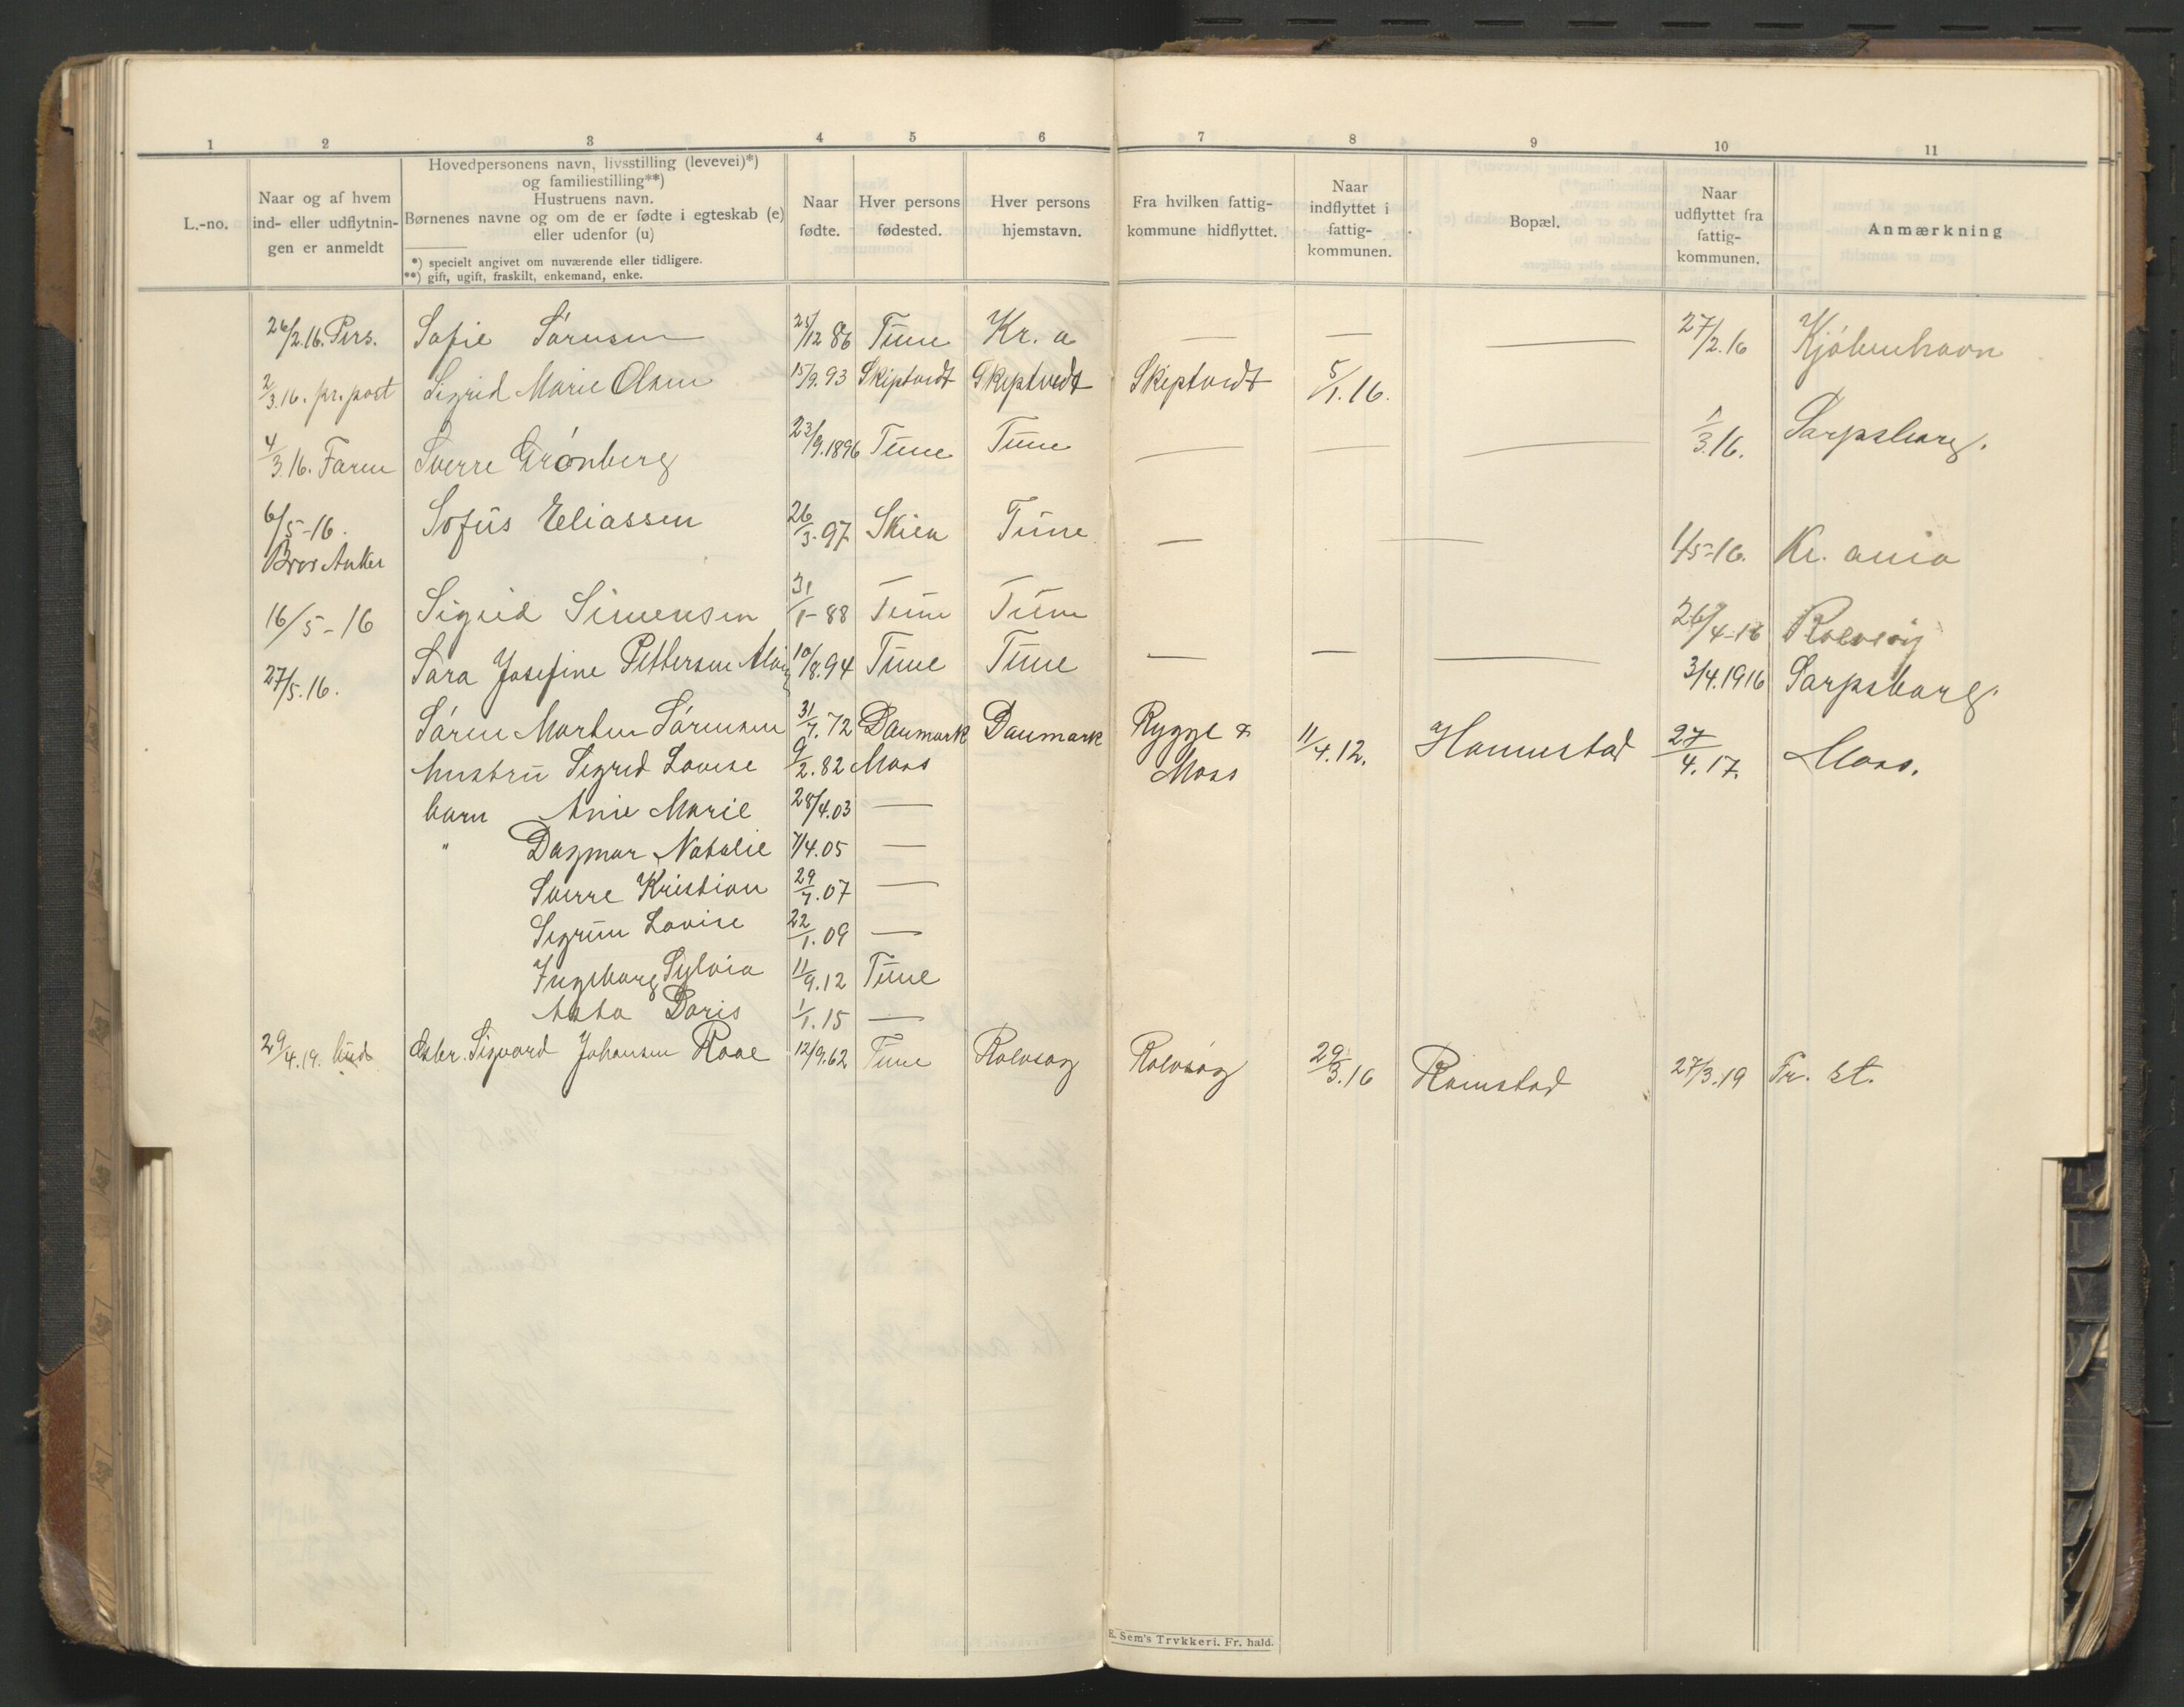 1 2 3 4 5 6 7 8 9 10 11
L.-no.
Naar og af hvem
ind- eller udflytnin-
gen er anmeldt
Hovedpersonens navn, livsstilling (levevei)*)
og familiestilling**)
Hustruens navn.
Børnenes navne og om de er fødte i egteskab (e)
eller udenfor (u)
*) specielt angivet om nuværende eller tidligere.
**) gift, ugift, fraskilt, enkemand, enke.
Naar
fødte.
Hver persons
fødested.
Hver persons
hjemstavn.
Fra hvilken fattig-
kommune hidflyttet.
Naar
indflyttet i
fattig-
kommunen.
Bopæl.
Naar
udflyttet fra
fattig-
kommunen.
Anmærkning
26/2.16. Pers. Sofie Sörensen 25/12 86 Tune Kr. a — — — 27/2.16 Kjöbenhavn
2/3.16. pr. post Sigrid Marie Olsen 15/9.93 Skiptvedt Skiptvedt Skiptvedt 5/1.16.
4/3.16. Faren Sverre Grönberg 23/9.1896 Tune Tune — — — 1/3.16. Sarpsborg.
6/5-16. Sofus Eliassen 26/3.97 Skien Tune — — 1/5-16. Kr. ania
Bror Anker
16/5-16 Sigrid Simensen 31/1-88 Tune Tune 26/4-16 Rolvsöy
27/5.16. Sara Josefine Pettersen 10/8.94 Tune Tune — — — 3/4.1916 Sarpsborg.
Sören Morten Sörensen 31/7.72 Danmark Danmark Rygge & 11/4.12. Hannestad 27/4.17. Moss.
hustru Sigrid Lovise 9/2.82 Moss Moss
barn Anie Marie 28/4.03 —
" Dagmar Natalie 7/4.05 —
Sverre Kristian 29/7.07 —
Sigrun Lovise 22/1.09 —
Ingeborg Sylvia 11/9.12 Tune
Asta Doris 1/1.15 —
29/4.19. bud Sigvard Johansen Roae 12/9.62 Tune Rolvsøy Rolvsøy 29/3.16 Ramstad 27/3.19 Fr. st.
E. Sem's Trykkeri. Fr. hald.